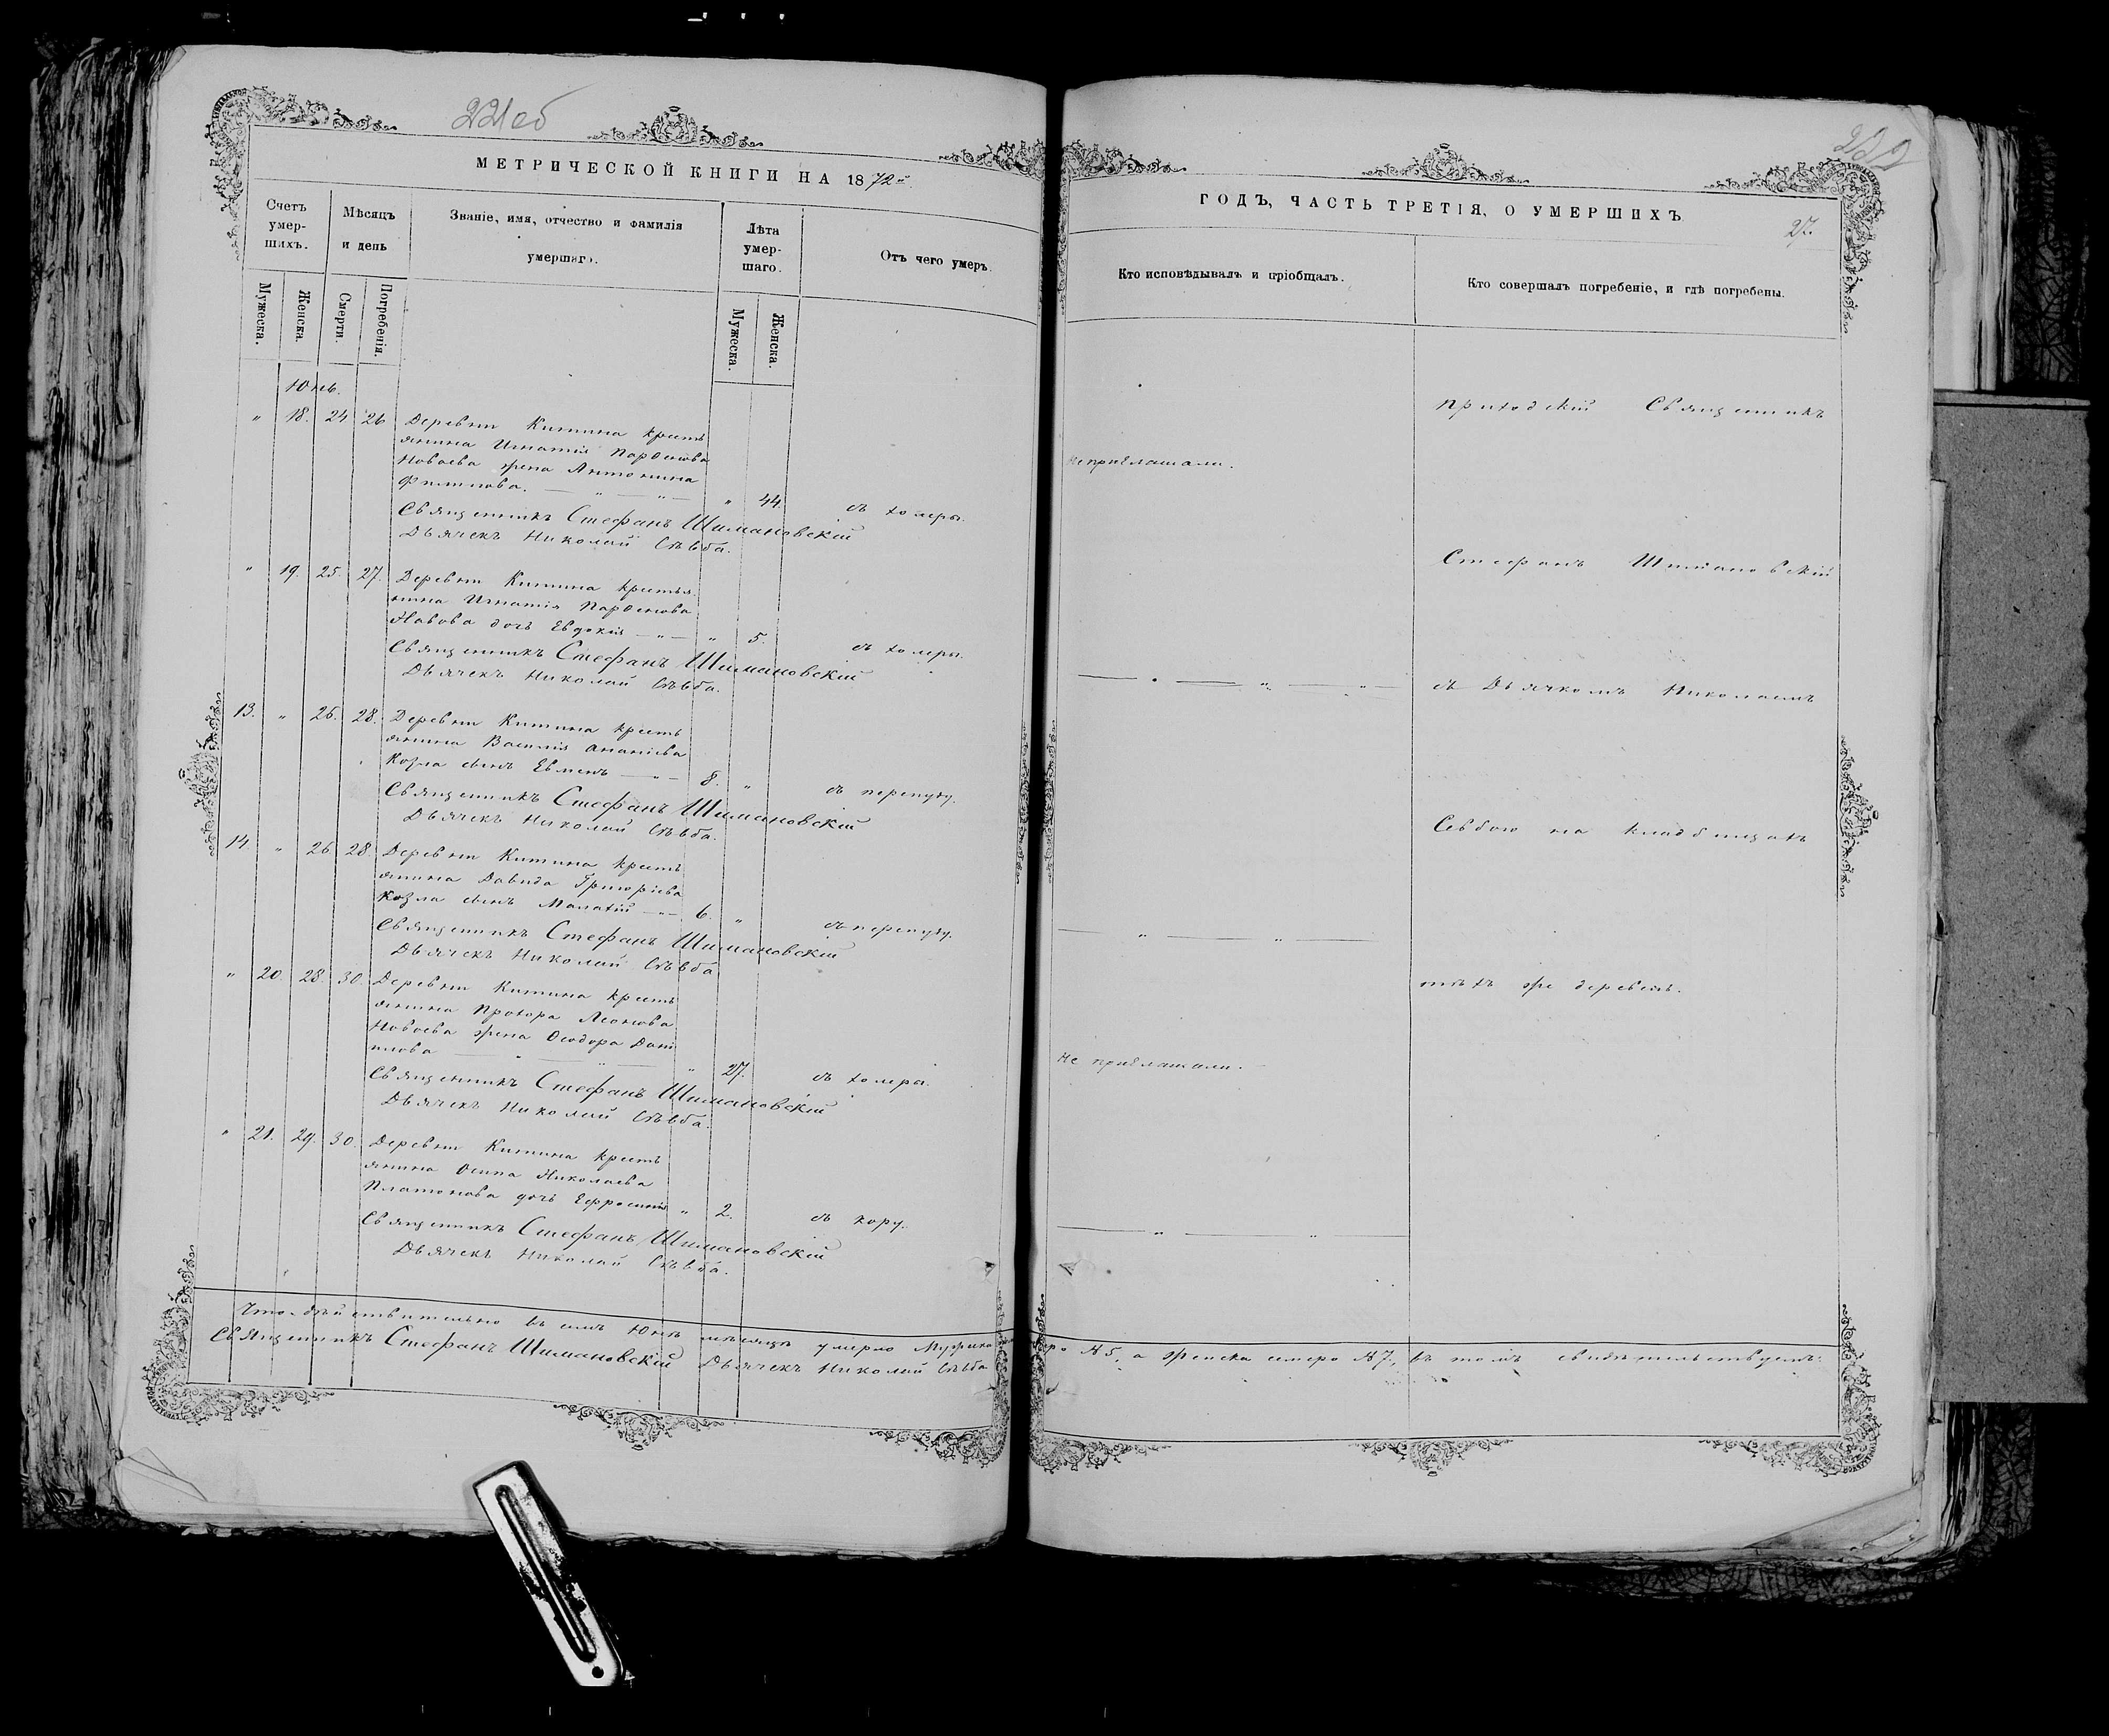 221об
МЕТРИЧЕСКОЙ КНИГИ НА 1872й
Счетъ умер-шихъ.
Мѣсяцъ и день
Званіе, имя, отчество и фамилія умершаго.
Лѣта умер-шаго.
Отъ чего умеръ.
Мужеска.
Женска.
Смерти.
Погребенія.
Мужеска.
Женска.
Юнь.
„ 18. 24 26 Деревни Китина кресть
янина Игнатія Парѳенова
Новаева жена Антонина
Филипова. — „ — „ — „ 44. съ холеры.
Священникъ Стефанъ Шимановскій
Дьячекъ Николай Сѣвба.
„ 19. 25. 27. Деревни Китина крестья
нина Игнатія Парѳенова
дочь Евдокія — „ — „ 5. съ холеры.
Священникъ Стефанъ Шимановскій
Дьячекъ Николай Сѣвба.
13. „ 26. 28. Деревни Китина кресть
янина Василія Ананіева
Козла сынъ Евменъ — „ — 8. „ съ перепугу.
Священникъ Стефанъ Шимановскій
Дьячекъ Николай Сѣвба.
14. „ 26 28. Деревни Китина кресть
янина Давида Григоріева
Козла сынъ Малахій — „ — 6. „ съ перепугу.
Священникъ Стефанъ Шимановскій
Дьячекъ Николай Сѣвба
„ 20. 28. 30. Деревни Китина кресть
янина Прохора Леонова
Новаева жена Ѳеодора Дани
илова — „ — „ — „ 27. съ холеры.
Священникъ Стефанъ Шимановскій
Дьячекъ Николай Сѣвба.
„ 21. 29. 30. Деревни Китина кресть
янина Осипа Николаева
Платонова дочь Ефросинія „ 2. съ кору.
Священникъ Стефанъ Шимановскій
Дьячекъ Николай Сѣвба.
Что дѣйствительно въ семъ Юнѣ мѣсяцѣ умерло Мужеска
Священникъ Стефанъ Шимановскій Дьячекъ Николай Сѣвба
222
ГОДЪ, ЧАСТЬ ТРЕТІЯ, О УМЕРШИХЪ
27.
Кто исповѣдывалъ и пріобщалъ.
Кто совершалъ погребеніе, и гдѣ погребены.
Приходскій Священникъ
Не приглашали.
Стефанъ Шимановскій
— „ — „ — „ — съ Дьячкомъ Николаемъ
Сѣвбою на кладбищахъ
— „ — „ —
тѣхъ же деревень.
Не приглашали.
— „ — „ —
№ 5, а Женска семеро № 7., въ томъ свидѣтельствуемъ.